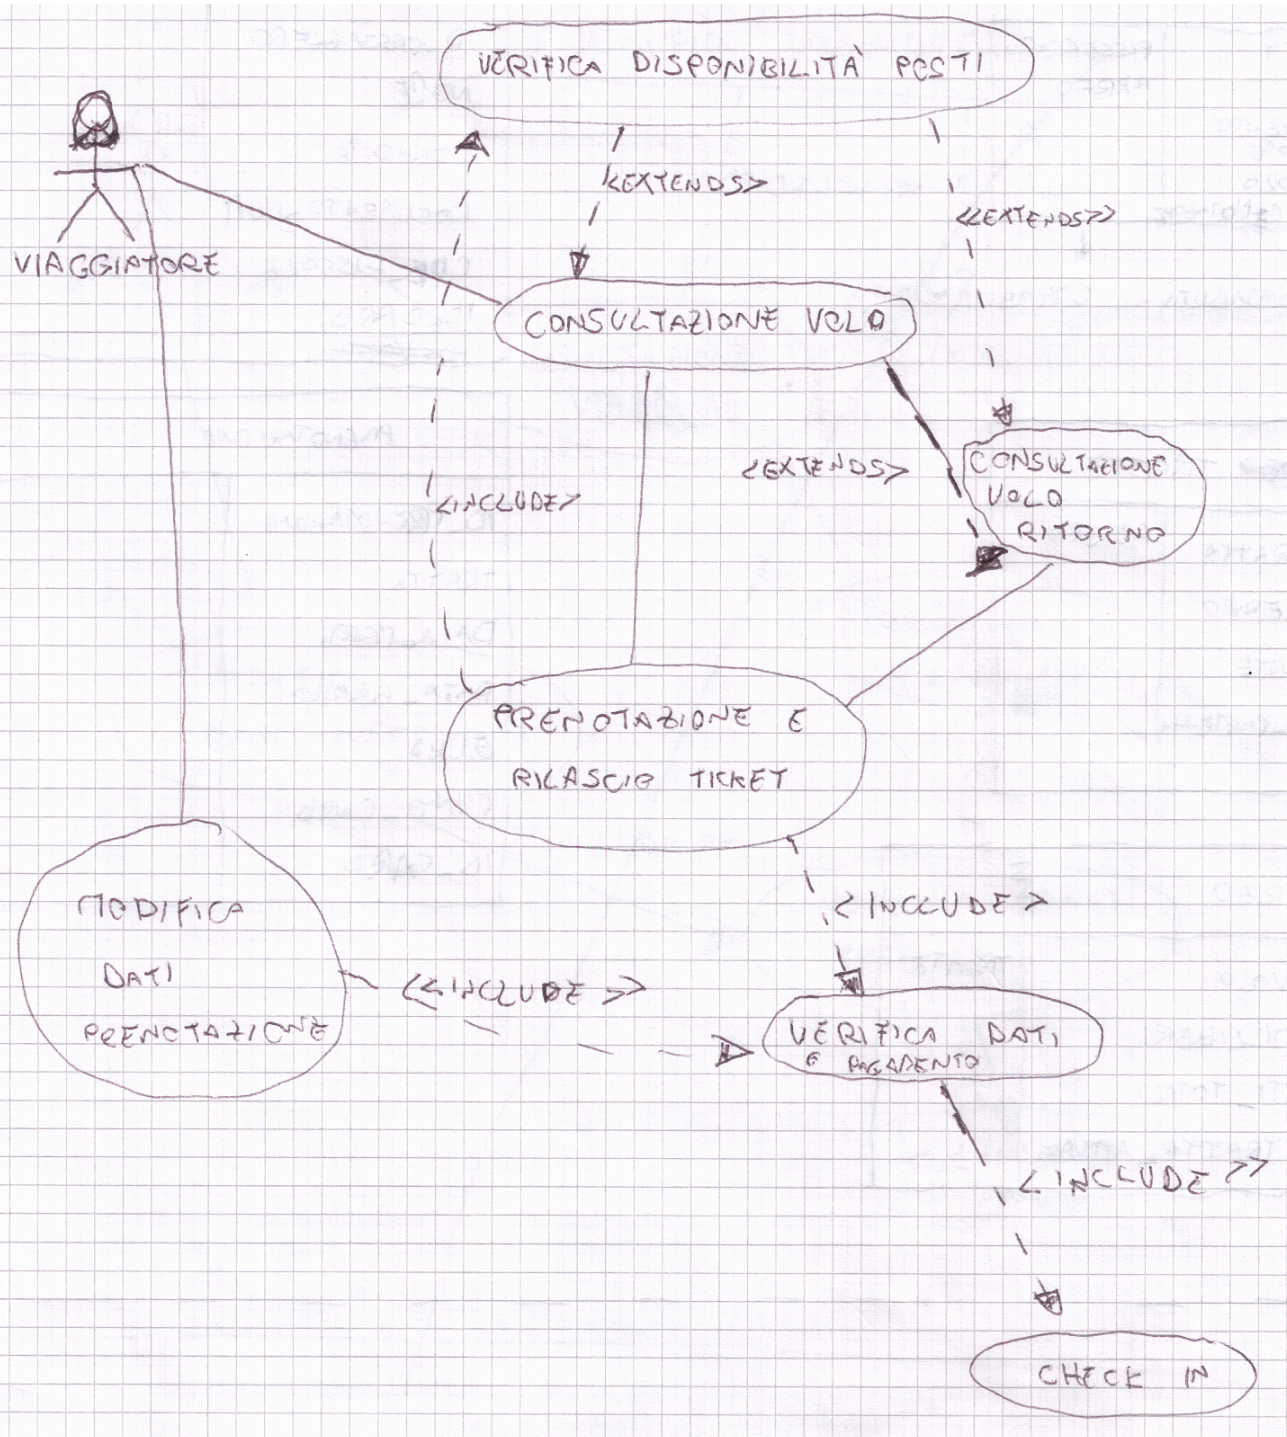 VERIFICA DISPONIBILITÀ POSTI
<EXTENDS>
<<EXTENDS>>
VIAGGIATORE
CONSULTAZIONE VOLO
<EXTENDS>
CONSULTAZIONE
VOLO
RITORNO
<INCLUDE>
PRENOTAZIONE E
RILASCIO TICKET
<INCLUDE>
MODIFICA
DATI
PRENOTAZIONE
<<INCLUDE>>
VERIFICA DATI
E PAGAMENTO
<INCLUDE>>
CHECK IN